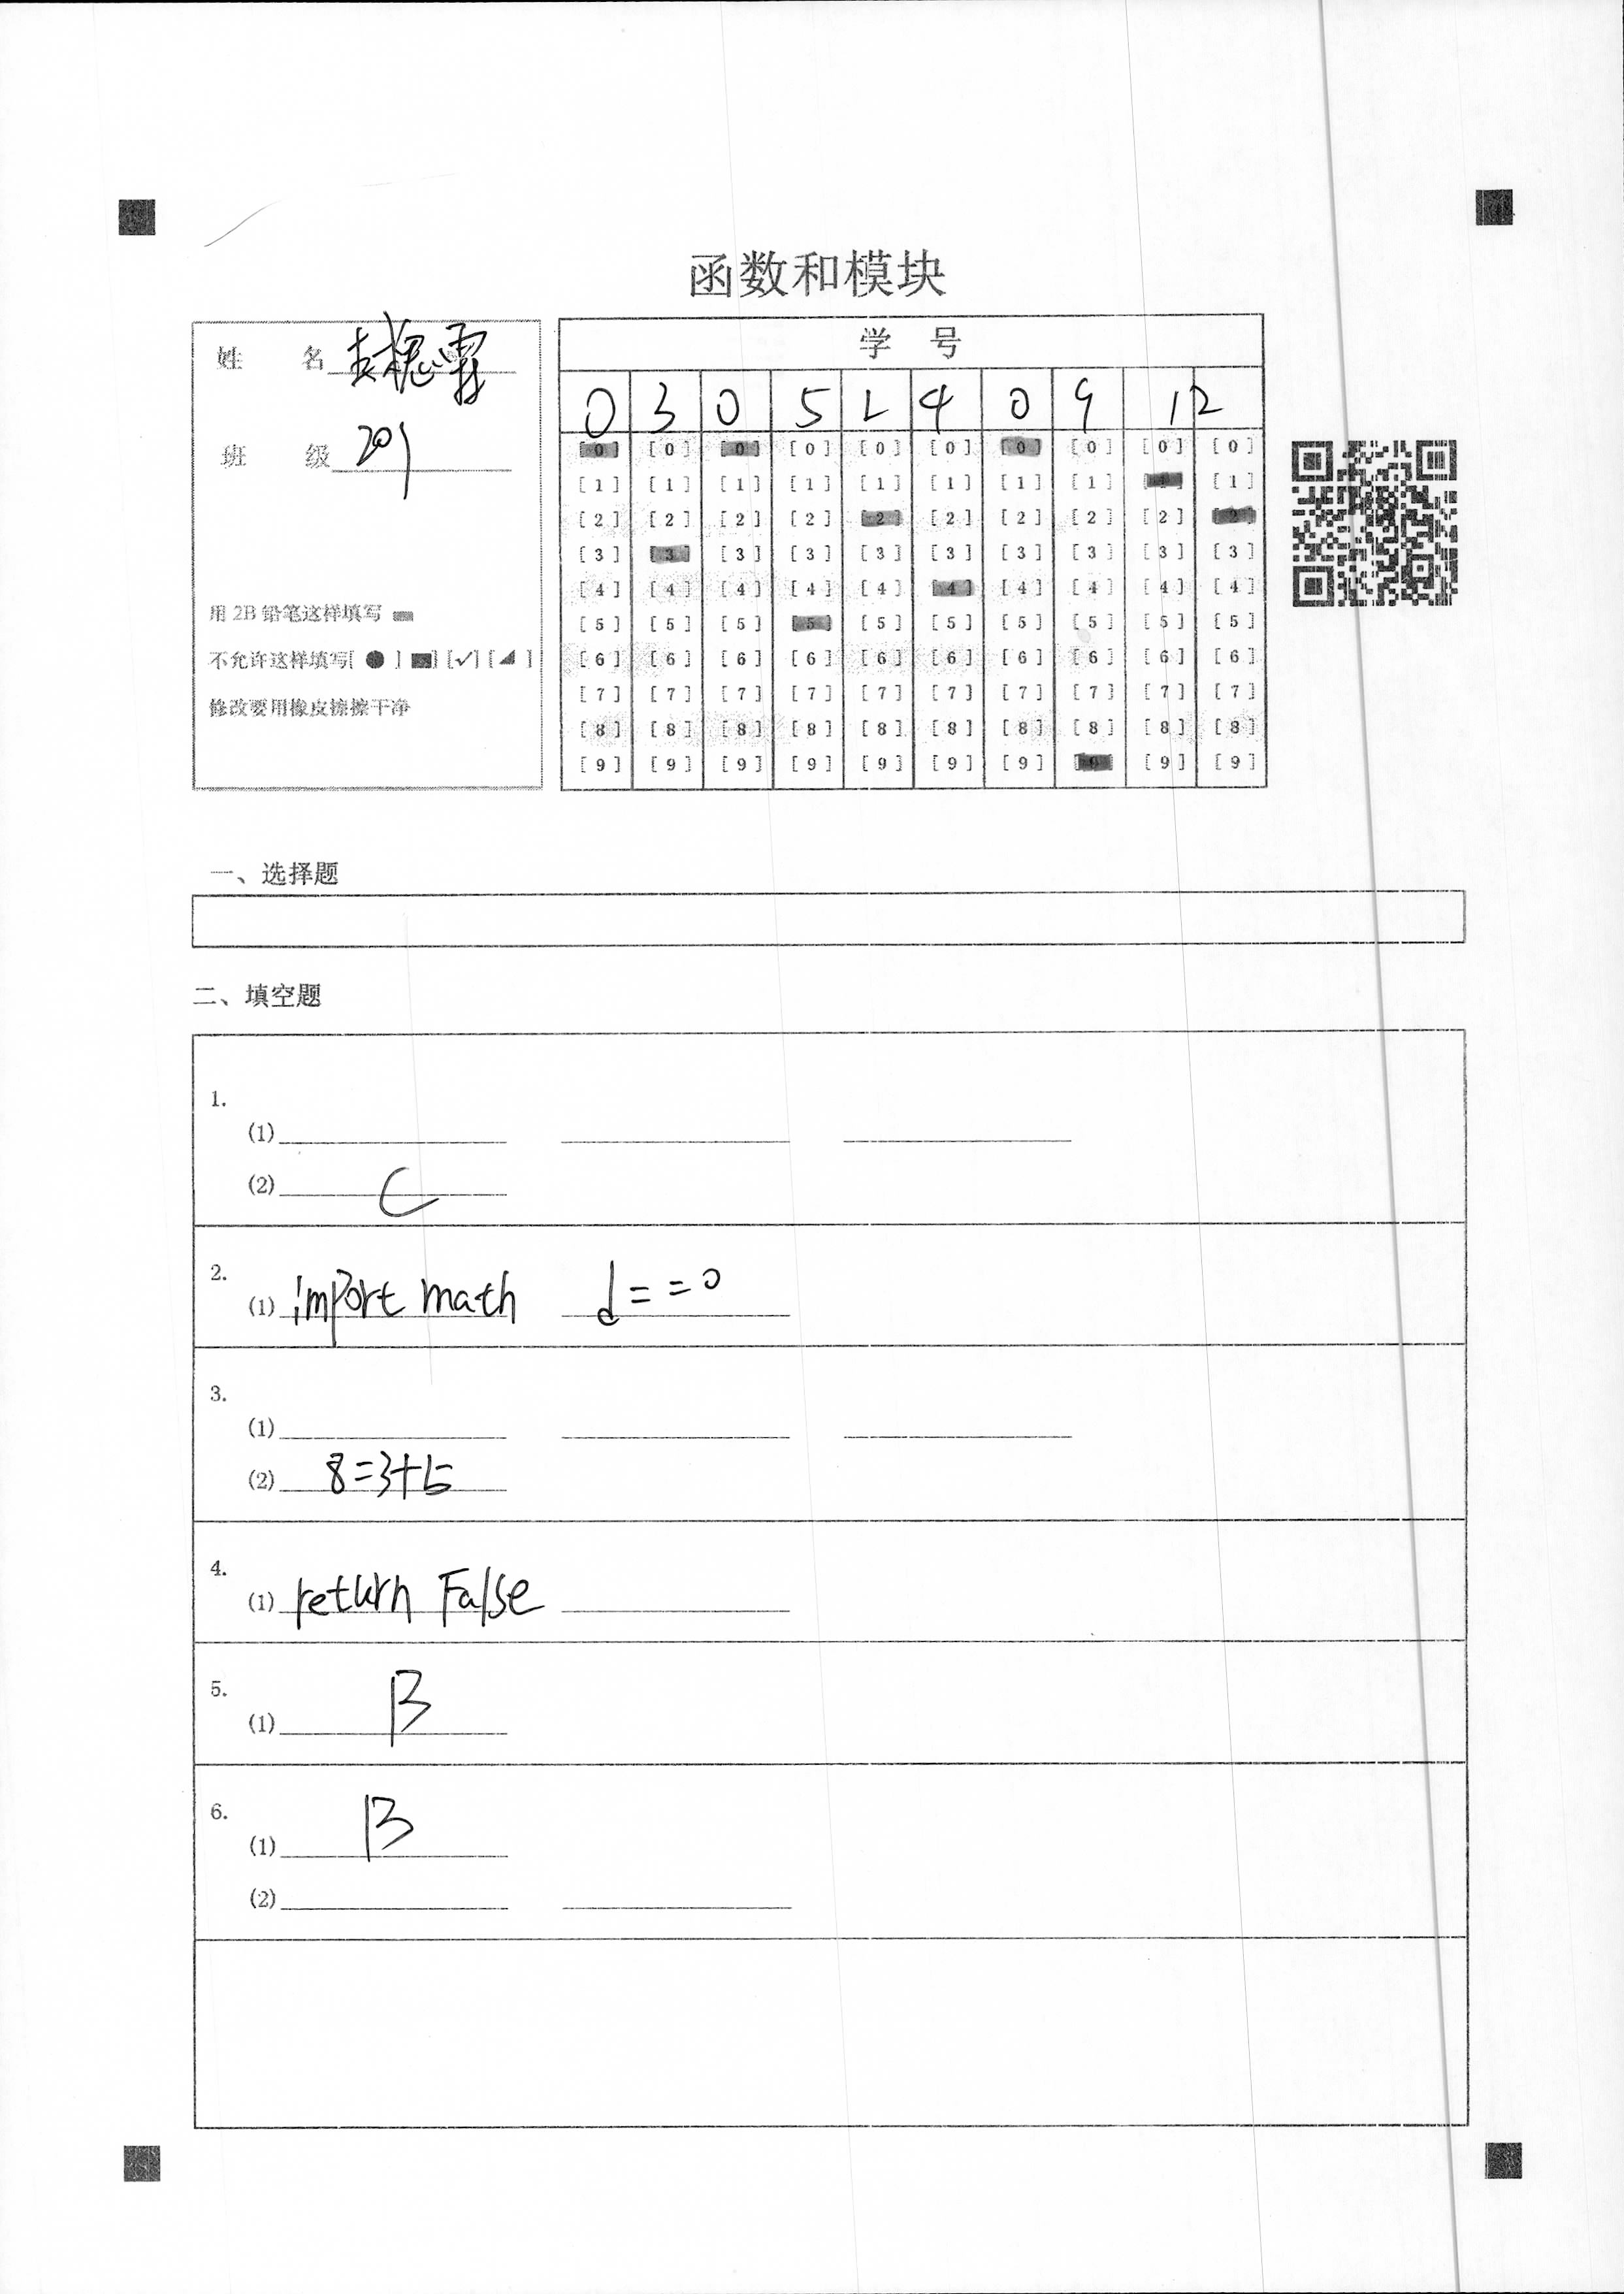 函数和模块
姓 名
班 级 209
用 2B 铅笔这样填写
不允许这样填写[ ● ] [■] [✓] [◢ ]
修改要用橡皮擦擦干净
学 号
0 3 0 5 2 4 0 9 1 2
[0] [0] [0] [0] [0] [0] [0] [0] [0] [0]
[1] [1] [1] [1] [1] [1] [1] [1] [1] [1]
[2] [2] [2] [2] [2] [2] [2] [2] [2] [2]
[3] [3] [3] [3] [3] [3] [3] [3] [3] [3]
[4] [4] [4] [4] [4] [4] [4] [4] [4] [4]
[5] [5] [5] [5] [5] [5] [5] [5] [5] [5]
[6] [6] [6] [6] [6] [6] [6] [6] [6] [6]
[7] [7] [7] [7] [7] [7] [7] [7] [7] [7]
[8] [8] [8] [8] [8] [8] [8] [8] [8] [8]
[9] [9] [9] [9] [9] [9] [9] [9] [9] [9]
一、选择题
二、填空题
1.
(1)
(2) C
2.
(1) import math d==0
3.
(1)
(2) 8=3+5
4.
(1) return False
5.
(1) B
6.
(1) B
(2)